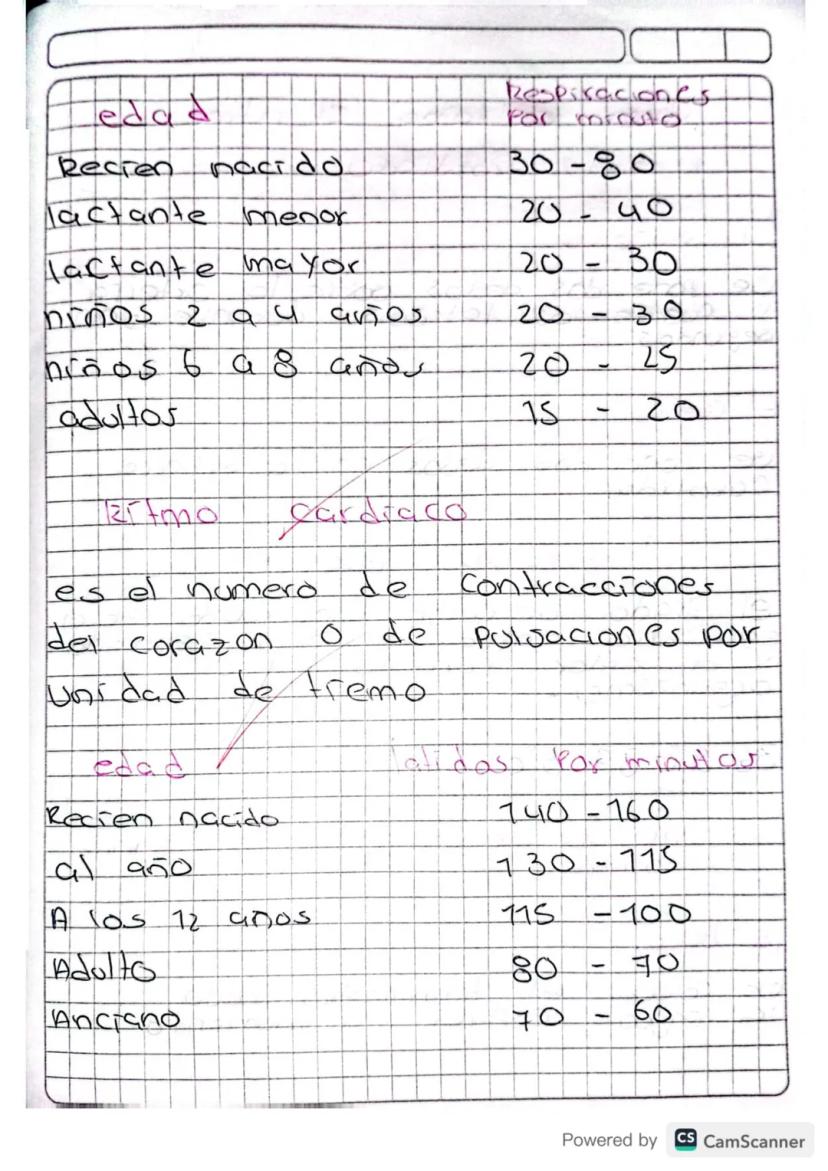 edad Respiraciones por minuto
Recien nacido 30 - 80
lactante menor 20 - 40
lactante mayor 20 - 30
niños 2 a 4 años 20 - 30
niños 6 a 8 años 20 - 25
adultos 15 - 20
Ritmo cardiaco
es el numero de contracciones
del corazon o de pulsaciones por
unidad de tiemo
edad latidos por minutos
Recien nacido 140 - 160
al año 130 - 115
A los 12 años 115 - 100
Adulto 80 - 70
Anciano 70 - 60
Powered by CS CamScanner